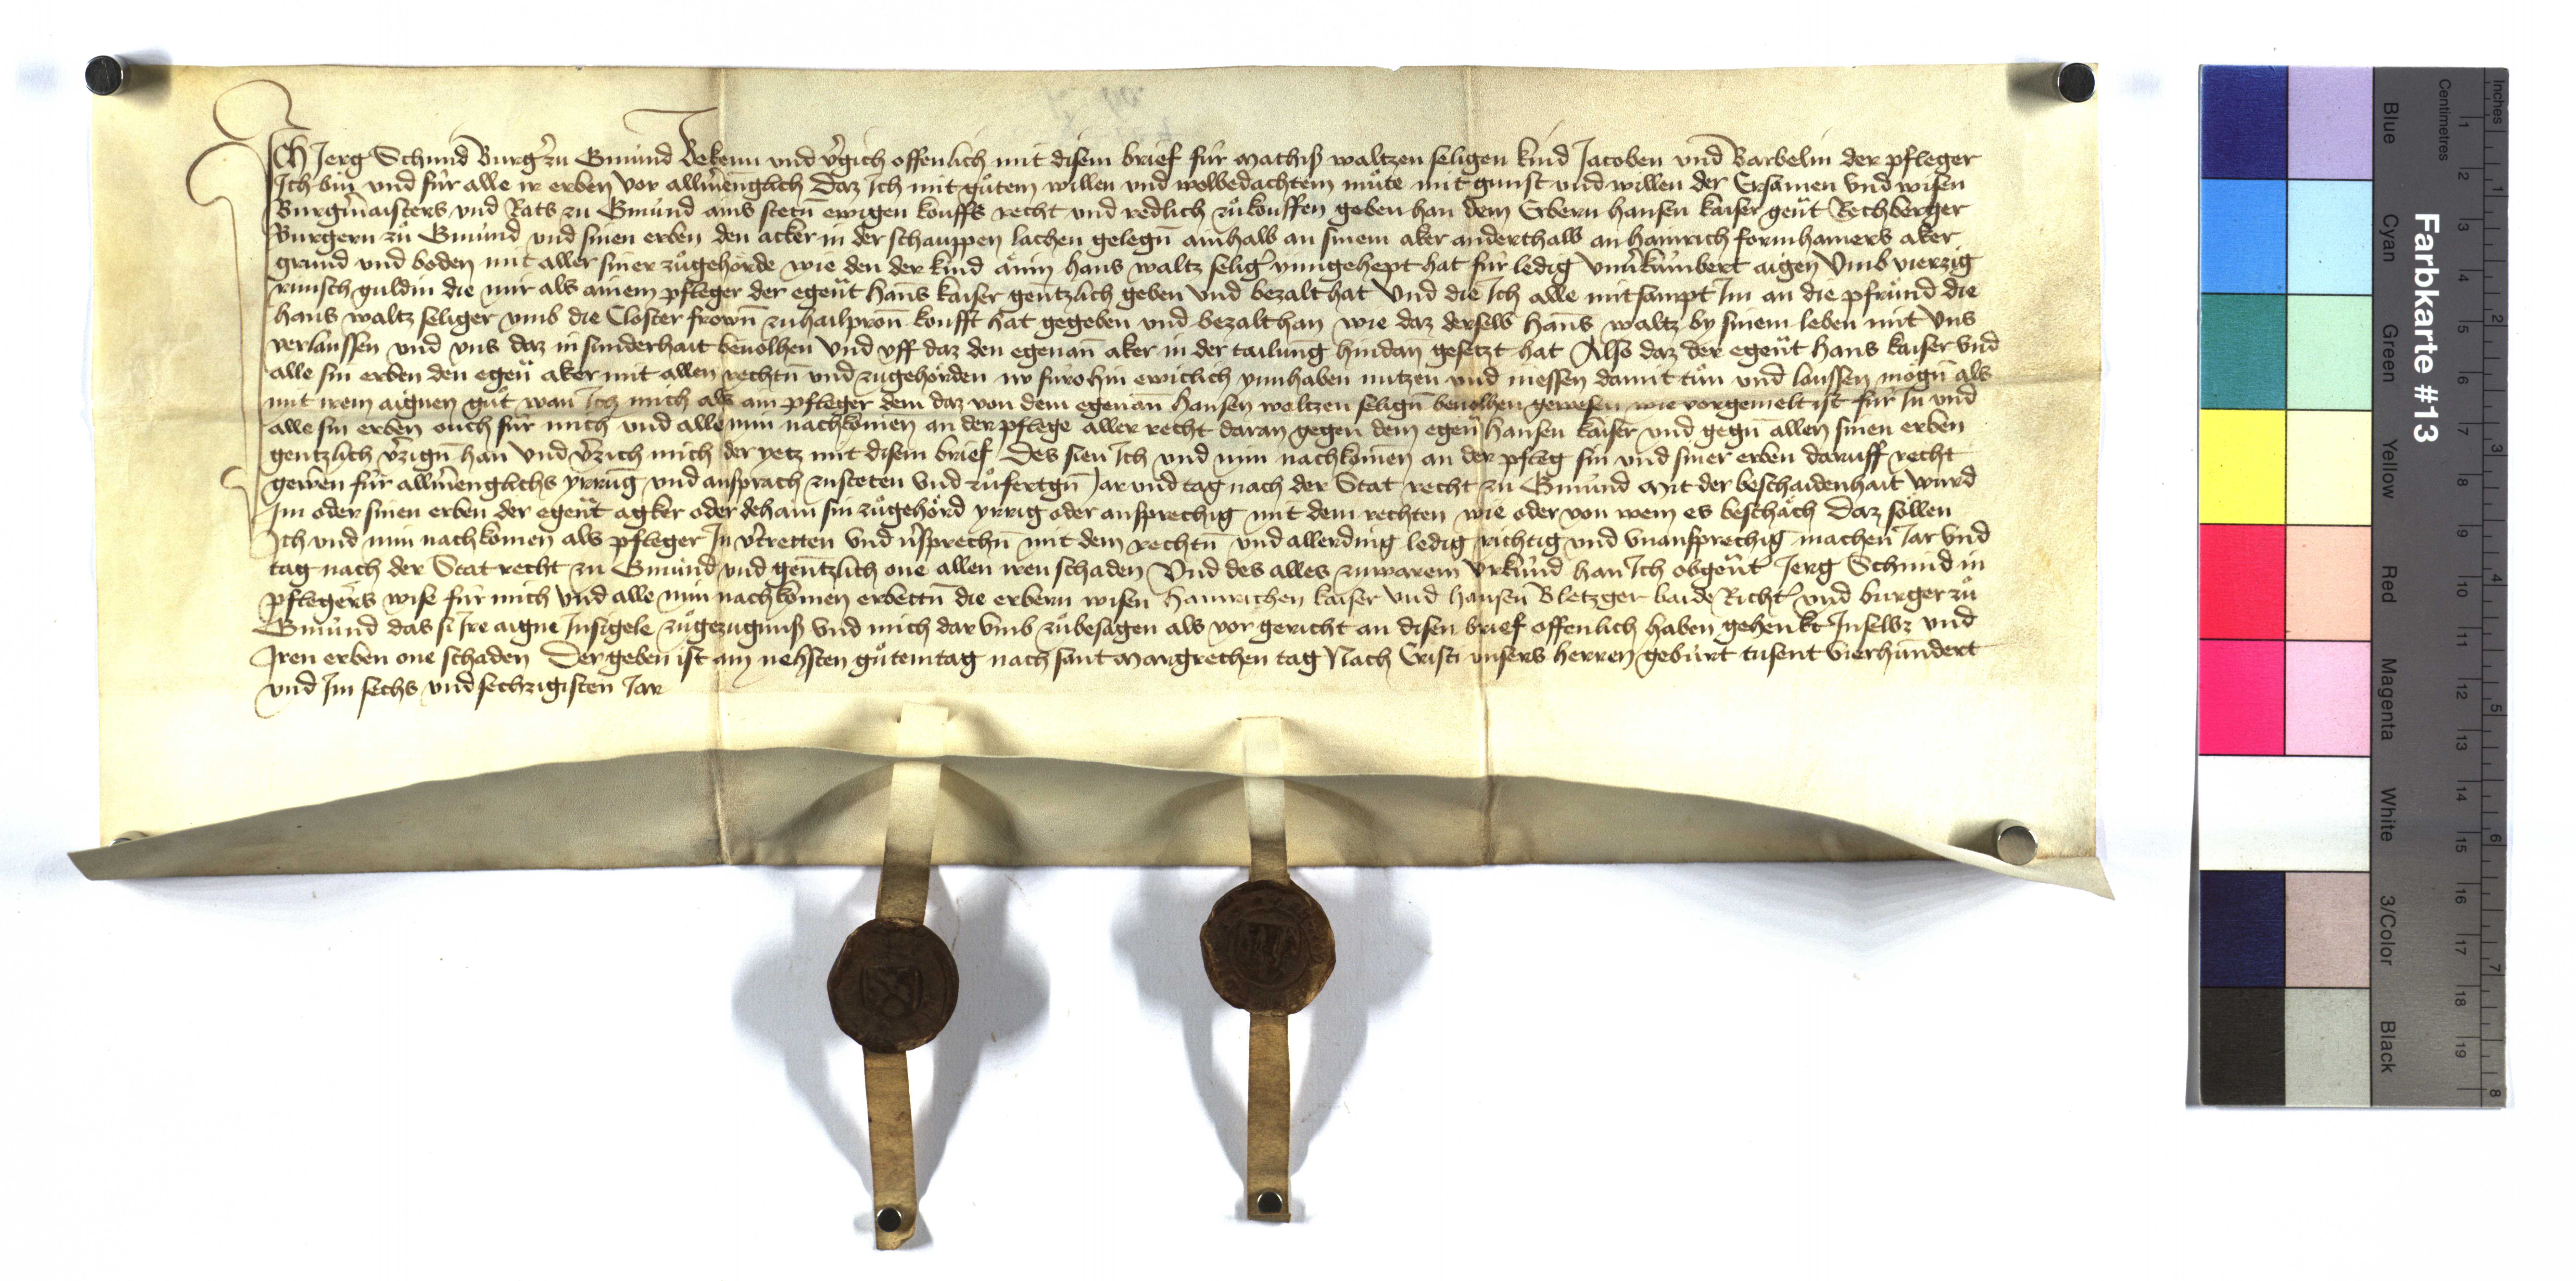 Ich Jerg Schmid Burgr̄ zu Gmünd Bekenn vnd v̄gich offenlich mit disem brief für Mathis waltzen seligen kind Jacoben vnd Barbelin der pfleger
Ich bin vnd für alle ir erben vor allmēnglich Daz Ich mit gůtem willen vnd wolbedachtem můte mit gunst vnd willen der Ersamen vnd wisen
Burgm̄aisters vnd Rats zu Gmünd ains stetn̄ ewigen kouffs recht vnd redlich zů kouffen geben han dem Erbern hansen kaiser genn̄t Rechberger
Burgern zů Gmünd vnd sinen erben den acker in der schauppen lachen gelegn̄ ainhalb an sinem aker anderthalb an hainrich aker
grund vnd boden mit aller siner zůgehörde wie den der kind änin hans waltz selig ynngehept hat für ledig vnu̍kümbert aigen Vmb vierzig
rinisch guldin die mir als ainem pfleger der egenn̄t hans kaiser gentzlich geben vnd bezalt hat Vnd die Ich alle mitsampt Im an die pfründ die
hans waltz seliger vmb die Closter frown̄ zu hailpron̄ koufft hat gegeben vnd bezalt han wie daz derselb hans waltz by sinem leben mit vns
verlaussen vnd vns daz in sunderhait beuolhen Vnd vff daz den egenan̄ aker in der tailung hindan gesetzt hat Also daz der egenn̄t hans kaiser vnd
alle sin erben den egenn̄ aker mit allen rechtn̄ vnd zugehörden nv fürohin ewiclich ynnhaben nutzen vnd niessen damit tůn vnd laussen mögn̄ als
mit irem aignen gůt wan Ich mich als ain pfleger dem daz von dem egenan̄ hansen waltzen selign̄ beuolhen gewesen wie vorgemelt ist für In vnd
alle sin erben ouch für mich vnd alle min nachkomen an der pflege aller recht daran gegen dem egenn̄ hansen kaiser vnd gegn̄ allen sinen erben
gentzlich v̄zign̄ han Vnd v̄zich mich der yetz mit disem brief Des sien Ich vnd min nachkomen an der pfleg sin vnd siner erben daruff recht
gewern für allmēnglichs yrrung vnd ansprach zusteten vnd zůfertgn̄ Jar vnd tag nach der Stat recht zu Gmünd Mit der beschaidenhait wurd
Im oder sinen erben der egenn̄t agker oder dehain sin zůgehörd yrrig oder ansprechig mit dem rechten wie oder von wem es beschäch Daz söllen
Ich vnd min nachkomen als pfleger In v̄tretten vnd v̄sprechn̄ mit dem rechtn̄ vnd allerding ledig richtig vnd vnansprechig machen Jar vnd
tag nach der Stat recht zu Gmünd vnd gentzlich one allen iren schaden Vnd des alles zuwarem vrkünd han Ich obgenn̄t Jerg Schmid in
pflegers wise für mich vnd alle min nachkomen erbettn̄ die erbern wisen hainrichen kaiser vnd hansen Bletzger baide Richtr̄ vnd burger zů
Gmünd das si Ire aigne Insigele zůgezugnuß vnd mich dar vmb zůbesagen als vor gericht an disen brief offenlich haben gehenkt In selbs vnd
Iren erben one schaden Der geben ist am nehsten gůtemtag nach sant Margrethen tag Nach Cristi vnsers herren gebürt tusent vierhundert
vnd Im sechs vnd sechzigisten Jar
Farbkarte #13
Blue Cyan Green Yellow Red Magenta White 3/Color Black
Centimetres 1 2 3 4 5 6 7 8 9 10 11 12 13 14 15 16 17 18 19
Inches 1 2 3 4 5 6 7 8